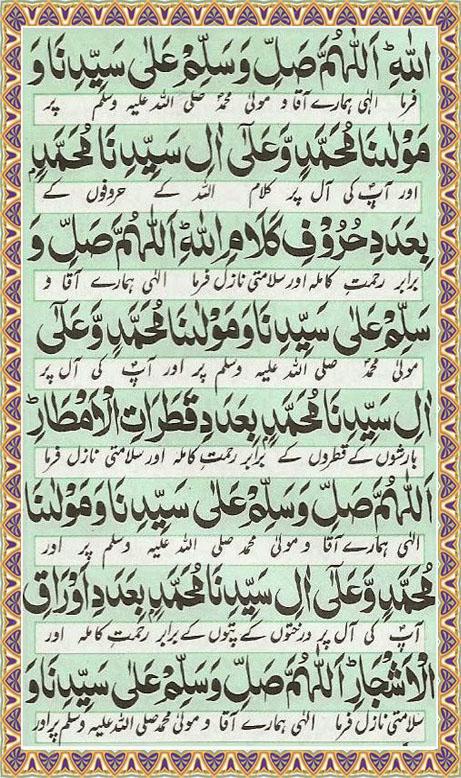 اللّٰهِ ؕ اَللّٰهُمَّ صَلِّ وَسَلِّمْ عَلٰى سَيِّدِنَا وَ
فرما الٰہی ہمارے آقا و مولیٰ محمدؐ صلی اللہ علیہ وسلم پر
مَوْلٰىنَا مُحَمَّدٍ وَّعَلٰٓى اٰلِ سَيِّدِنَا مُحَمَّدٍۭ
اور آپؐ کی آل پر کلام اللہ کے حروفوں کے
بِعَدَدِ حُرُوْفِ كَلَامِ اللّٰهِ ؕ اَللّٰهُمَّ صَلِّ وَ
برابر رحمتِ کاملہ اور سلامتی نازل فرما الٰہی ہمارے آقا و
سَلِّمْ عَلٰى سَيِّدِنَا وَمَوْلٰىنَا مُحَمَّدٍ وَّعَلٰٓى
مولیٰ محمدؐ صلی اللہ علیہ وسلم پر اور آپؐ کی آل پر
اٰلِ سَيِّدِنَا مُحَمَّدٍۭ بِعَدَدِ قَطَرَاتِ الْاَمْطَارِ ؕ
بارشوں کے قطروں کے برابر رحمتِ کاملہ اور سلامتی نازل فرما
اَللّٰهُمَّ صَلِّ وَسَلِّمْ عَلٰى سَيِّدِنَا وَمَوْلٰىنَا
الٰہی ہمارے آقا و مولیٰ محمد صلی اللہ علیہ وسلم پر اور
مُحَمَّدٍ وَّعَلٰٓى اٰلِ سَيِّدِنَا مُحَمَّدٍۭ بِعَدَدِ اَوْرَاقِ
آپؐ کی آل پر درختوں کے پتوں کے برابر رحمتِ کاملہ اور
الْاَشْجَارِ ؕ اَللّٰهُمَّ صَلِّ وَسَلِّمْ عَلٰى سَيِّدِنَا وَ
سلامتی نازل فرما الٰہی ہمارے آقا و مولیٰ محمد صلی اللہ علیہ وسلم پر اور